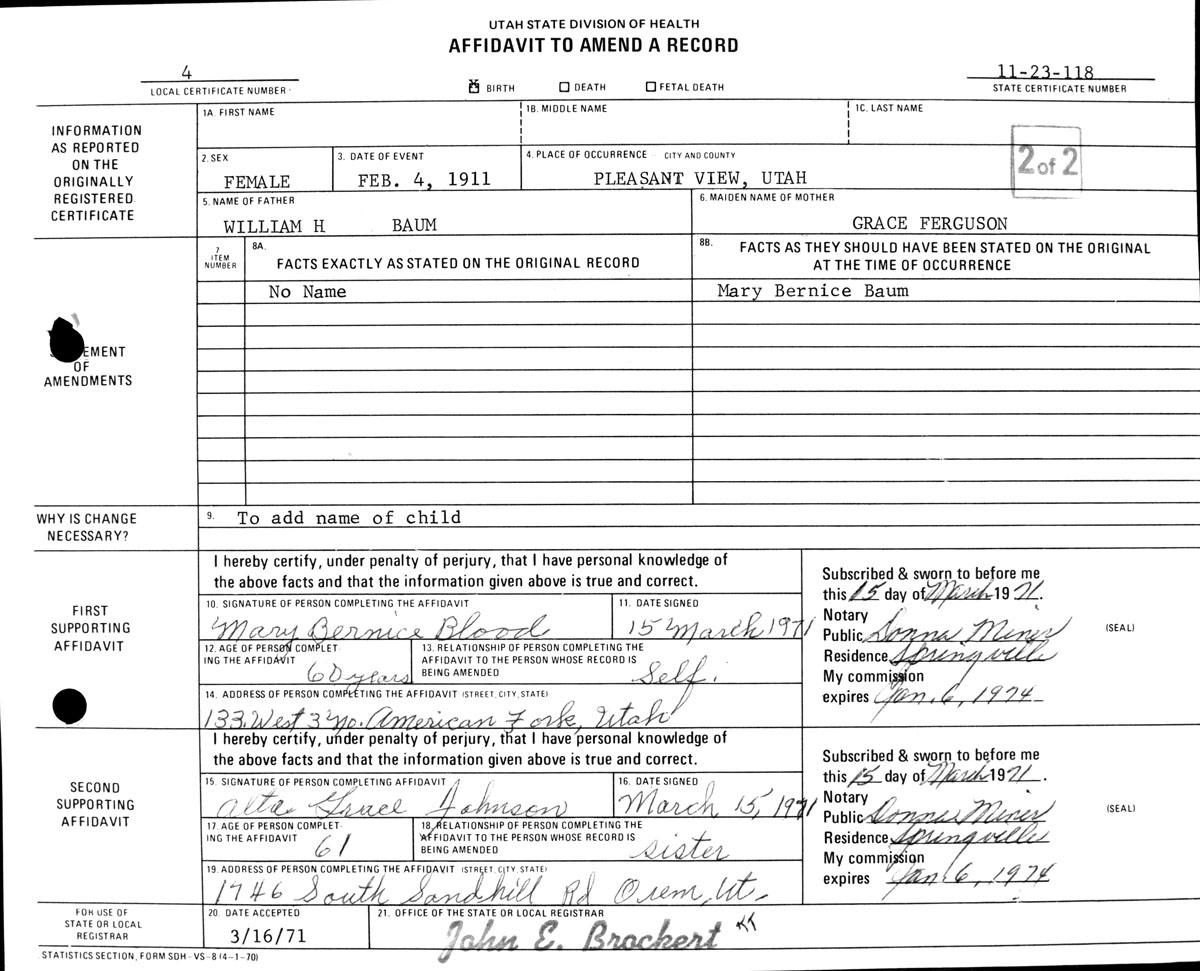 UTAH STATE DIVISION OF HEALTH
AFFIDAVIT TO AMEND A RECORD
4
LOCAL CERTIFICATE NUMBER
☒ BIRTH ☐ DEATH ☐ FETAL DEATH
11-23-118
STATE CERTIFICATE NUMBER
INFORMATION
AS REPORTED
ON THE
ORIGINALLY
REGISTERED
CERTIFICATE
1A. FIRST NAME
1B. MIDDLE NAME
1C. LAST NAME
2. SEX
FEMALE
3. DATE OF EVENT
FEB. 4, 1911
4. PLACE OF OCCURRENCE CITY AND COUNTY
PLEASANT VIEW, UTAH
2 of 2
5. NAME OF FATHER
WILLIAM H BAUM
6. MAIDEN NAME OF MOTHER
GRACE FERGUSON
EMENT
OF
AMENDMENTS
7
ITEM
NUMBER
8A.
FACTS EXACTLY AS STATED ON THE ORIGINAL RECORD
8B. FACTS AS THEY SHOULD HAVE BEEN STATED ON THE ORIGINAL
AT THE TIME OF OCCURRENCE
No Name
Mary Bernice Baum
WHY IS CHANGE
NECESSARY?
9. To add name of child
FIRST
SUPPORTING
AFFIDAVIT
I hereby certify, under penalty of perjury, that I have personal knowledge of
the above facts and that the information given above is true and correct.
10. SIGNATURE OF PERSON COMPLETING THE AFFIDAVIT
Mary Bernice Blood
11. DATE SIGNED
15 March 1971
12. AGE OF PERSON COMPLET-
ING THE AFFIDAVIT
60 years
13. RELATIONSHIP OF PERSON COMPLETING THE
AFFIDAVIT TO THE PERSON WHOSE RECORD IS
BEING AMENDED
Self.
14. ADDRESS OF PERSON COMPLETING THE AFFIDAVIT (STREET, CITY, STATE)
133 West 3 No. American Fork, Utah
Subscribed & sworn to before me
this 15 day of March 1971.
Notary
Public Donna Miner
Residence Springville
My commission
expires Jan. 6, 1974
(SEAL)
SECOND
SUPPORTING
AFFIDAVIT
I hereby certify, under penalty of perjury, that I have personal knowledge of
the above facts and that the information given above is true and correct.
15. SIGNATURE OF PERSON COMPLETING AFFIDAVIT
Alta Grace Johnson
16. DATE SIGNED
March 15, 1971
17. AGE OF PERSON COMPLET-
ING THE AFFIDAVIT
61
18. RELATIONSHIP OF PERSON COMPLETING THE
AFFIDAVIT TO THE PERSON WHOSE RECORD IS
BEING AMENDED
sister
19. ADDRESS OF PERSON COMPLETING THE AFFIDAVIT (STREET, CITY, STATE)
1746 South Sandhill Rd Orem, Ut.
Subscribed & sworn to before me
this 15 day of March 1971.
Notary
Public Donna Miner
Residence Springville
My commission
expires Jan. 6, 1974
(SEAL)
FOR USE OF
STATE OR LOCAL
REGISTRAR
20. DATE ACCEPTED
3/16/71
21. OFFICE OF THE STATE OR LOCAL REGISTRAR
John E. Brockert
STATISTICS SECTION, FORM SDH-VS-8 (4-1-70)